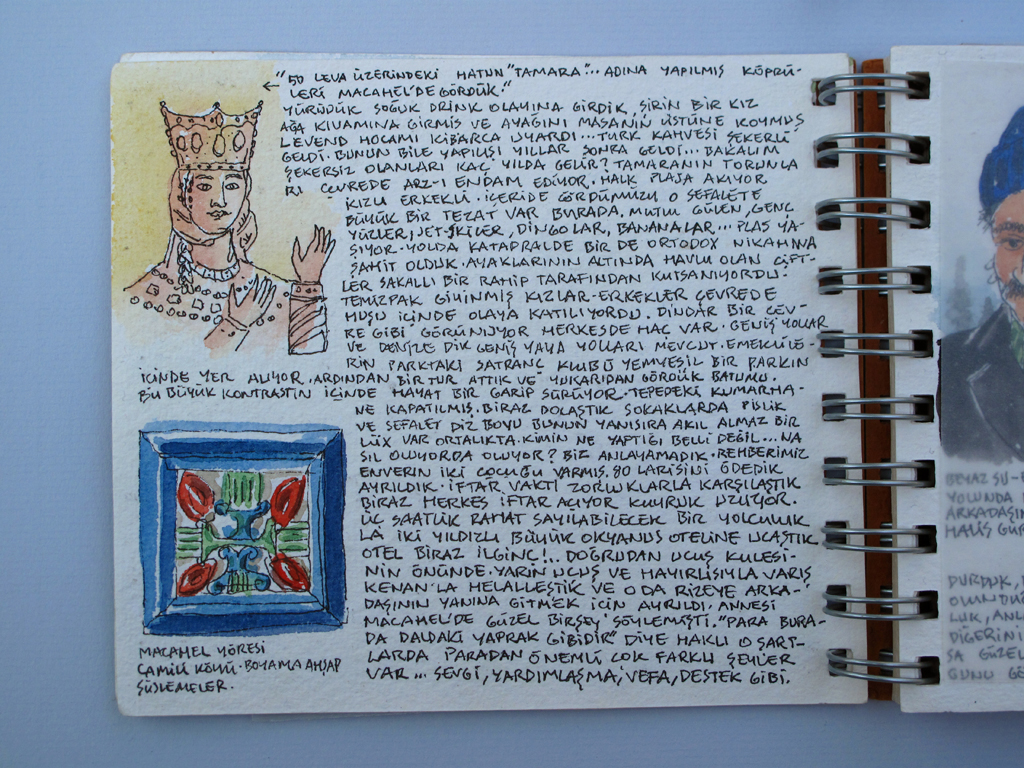 "50 LEVA ÜZERİNDEKİ HATUN "TAMARA"... ADINA YAPILMIŞ KÖPRÜ-
LERİ MACAHEL'DE GÖRDÜK."
YÜRÜDÜK SOĞUK DRINK OLAYINA GİRDİK, ŞİRİN BİR KIZ
AĞA KIVAMINA GİRMİŞ VE AYAĞINI MASANIN ÜSTÜNE KOYMUŞ
LEVEND HOCAMI KİBARCA UYARDI... TÜRK KAHVESİ ŞEKERLİ
GELDİ. BUNUN BİLE YAPILIŞI YILLAR SONRA GELDİ... BAKALIM
ŞEKERSİZ OLANLARI KAÇ YILDA GELİR? TAMARANIN TORUNLA
RI ÇEVREDE ARZ-I ENDAM EDİYOR. HALK PLAJA AKIYOR
KIZLI ERKEKLİ. İÇERİDE GÖRDÜĞÜMÜZ O SEFALETE
BÜYÜK BİR TEZAT VAR BURADA. MUTLU GÜLEN, GENÇ
YÜZLER, JET-SKİLER, DİNGOLAR, BANANALAR... PLAJ YA-
ŞIYOR. YOLDA KATADRALDE BİR DE ORTODOX NİKAHINA
ŞAHİT OLDUK. AYAKLARININ ALTINDA HAVLU OLAN ÇİFT-
LER SAKALLI BİR RAHİP TARAFINDAN KUTSANIYORDU.
TEMİZPAK GİYİNMİŞ KIZLAR-ERKEKLER ÇEVREDE
HUŞU İÇİNDE OLAYA KATILIYORDU. DİNDAR BİR ÇEV-
RE GİBİ GÖRÜNÜYOR HERKESDE HAÇ VAR. GENİŞ YOLLAR
VE DENİZE DİK GENİŞ YAYA YOLLARI MEVCUT. EMEKLİLE-
RİN PARKTAKİ SATRANÇ KLUBÜ YEMYEŞİL BİR PARKIN
İÇİNDE YER ALIYOR. ARDINDAN BİR TUR ATTIK VE YUKARIDAN GÖRDÜK BATUMU.
BU BÜYÜK KONTRASTIN İÇİNDE HAYAT BİR GARİP SÜRÜYOR. TEPEDEKİ KUMARHA-
NE KAPATILMIŞ. BİRAZ DOLAŞTIK SOKAKLARDA PİSLİK
VE SEFALET DİZ BOYU BUNUN YANISIRA AKIL ALMAZ BİR
LÜX VAR ORTALIKTA. KİMİN NE YAPTIĞI BELLİ DEĞİL... NA
SIL OLUYORDA OLUYOR? BİZ ANLAYAMADIK. REHBERİMİZ
ENVERİN İKİ ÇOCUĞU VARMIŞ. 80 LARİSİNİ ÖDEDİK
AYRILDIK. İFTAR VAKTİ ZORLUKLARLA KARŞILAŞTIK
BİRAZ HERKES İFTAR AÇIYOR KUYRUK UZUYOR.
ÜÇ SAATLİK RAHAT SAYILABİLECEK BİR YOLCULUK
LA İKİ YILDIZLI BÜYÜK OKYANUS OTELİNE UÇAŞTIK
OTEL BİRAZ İLGİNÇ!.. DOĞRUDAN UÇUŞ KULESİ-
NİN ÖNÜNDE. YARIN UÇUŞ VE HAYIRLISIYLA VARIŞ
KENAN'LA HELALLEŞTİK VE O DA RİZEYE ARKA-
DAŞININ YANINA GİTMEK İÇİN AYRILDI. ANNESİ
MACAHEL'DE GÜZEL BİRŞEY SÖYLEMİŞTİ. "PARA BURA-
DA DALDAKİ YAPRAK GİBİDİR" DİYE HAKLI O ŞART-
LARDA PARADAN ÖNEMLİ ÇOK FARKLI ŞEYLER
VAR... SEVGİ, YARDIMLAŞMA, VEFA, DESTEK GİBİ.
MACAHEL YÖRESİ
CAMİLİ KÖYÜ. BOYAMA AHŞAP
SÜSLEMELER.
BEYAZ SU-
YOLUNDA
ARKADAŞIN
HALİS GÜR
DURDUK,
OLUNDU
LUK, ANL
DİĞERİNİ
SA GÜZEL
GÜNÜ GÖ